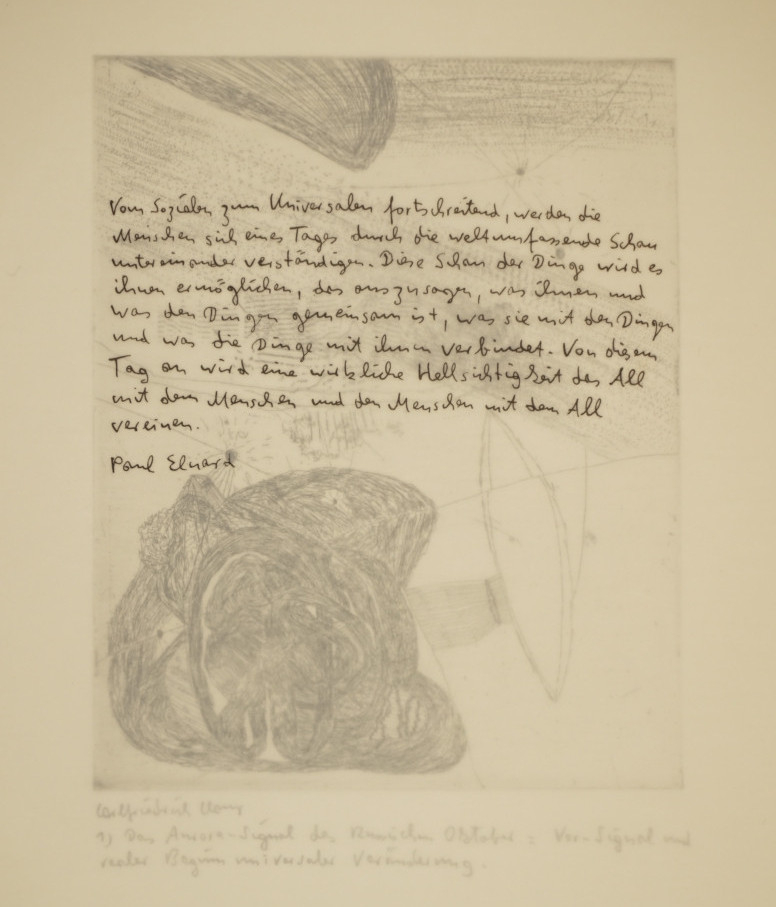 Vom Sozialen zum Universalen fortschreitend, werden die
Menschen sich eines Tages durch die weltumfassende Schau
untereinander verständigen. Diese Schau der Dinge wird es
ihnen ermöglichen, das auszusagen, was ihnen und
was den Dingen gemeinsam ist, was sie mit den Dingen
und was die Dinge mit ihnen verbindet. Von diesem
Tag an wird eine wirkliche Hellsichtigkeit das All
mit dem Menschen und den Menschen mit dem All
vereinen.
Paul Eluard
1) Das Aurora-Signal des Russischen Oktober : Vor-Signal und
realer Beginn universaler Veränderung.